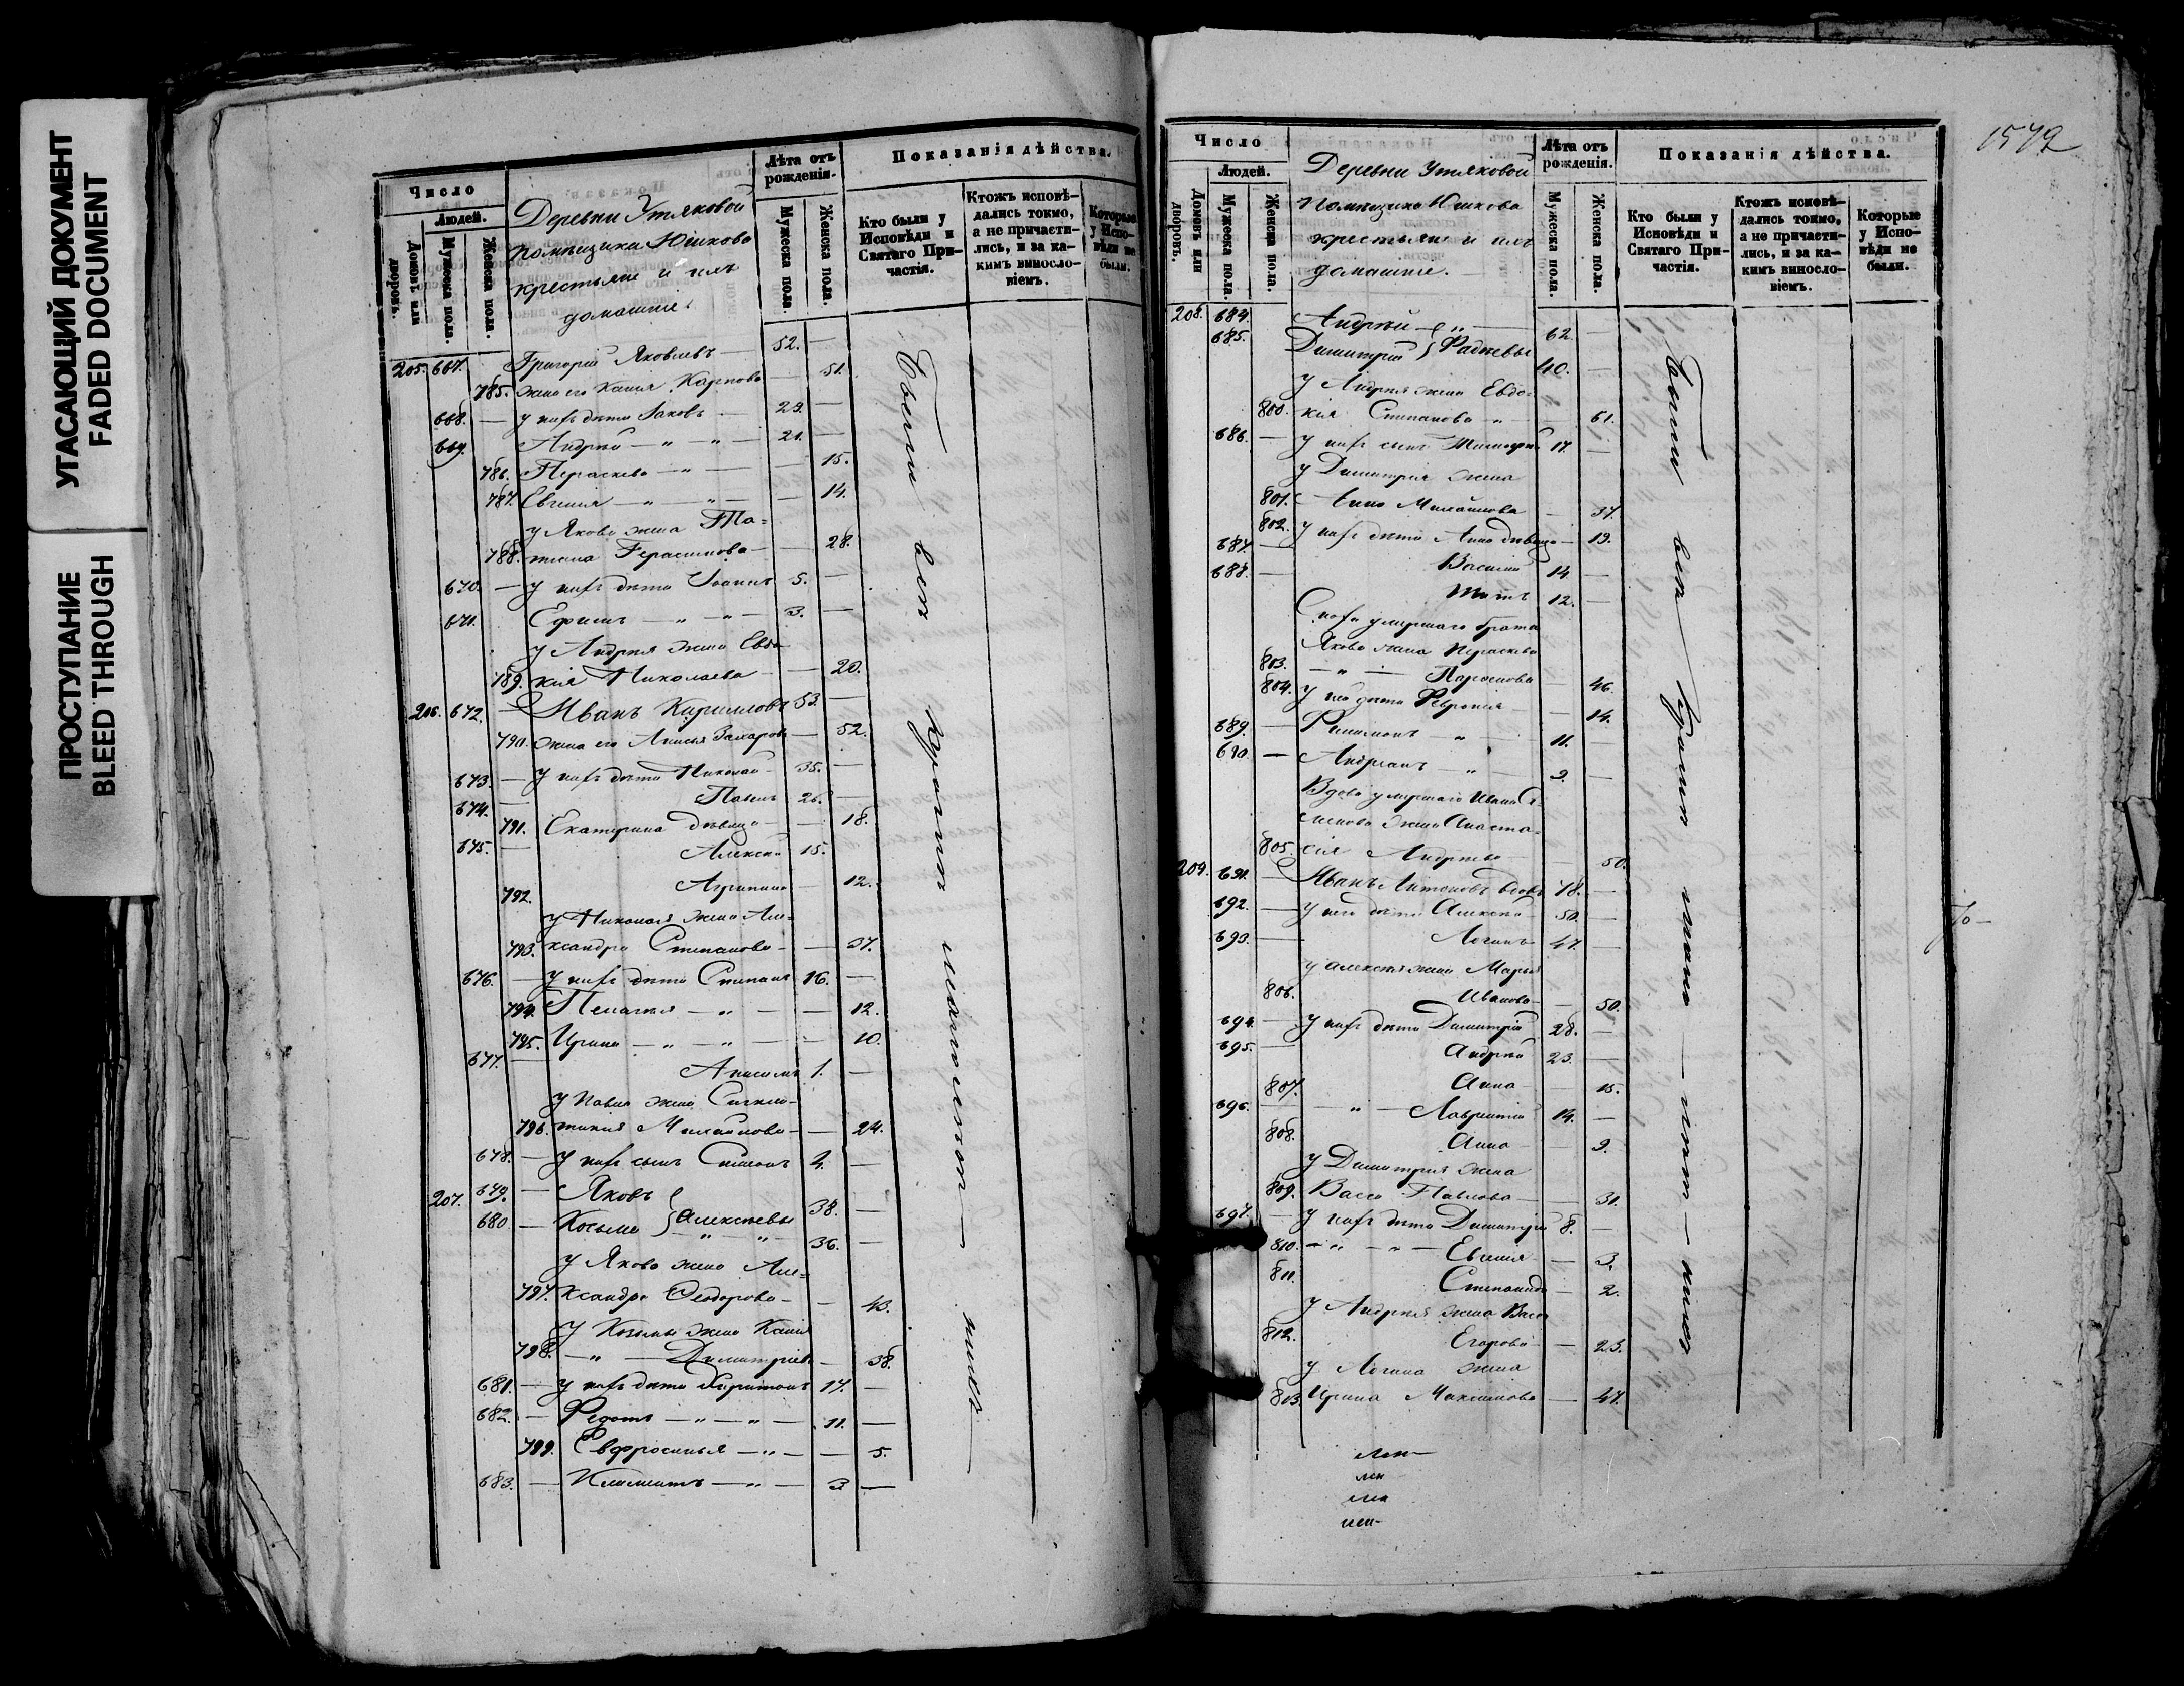 УГАСАЮЩИЙ ДОКУМЕНТ
FADED DOCUMENT
ПРОСТУПАНИЕ
BLEED THROUGH
Число
Людей.
Домовъ или дворовъ.
Мужеска пола.
Женска пола.
Деревни Утяковой
помѣщика Юшкова
крестьяне и ихъ
домашніе.
Лѣта отъ рожденія.
Мужеска пола.
Женска пола.
Показанія дѣйства.
Кто были у Исповѣди и Святаго Причастія.
Ктожъ исповѣдались токмо, а не причастились, и за какимъ винословіемъ.
Которые у Исповѣди не были.
205. 667. Григорій Яковлевъ — 52. —
785. жена его Ксенія Карпова — 51.
668. — у нихъ дѣти Іаковъ — 29. —
669. Андрей — „ — „ — 21. —
786. Параскева — „ — — 15.
787. Евгенія — „ — „ — — 14.
у Якова жена Та-
788. тіана Герасимова — — 28.
670. — у нихъ дѣти Іоаннъ 5. —
671. Ефимъ — „ — „ — 3. —
у Андрея жена Евдо-
789. кія Николаева — — 20.
206. 672. — Иванъ Кирилловъ 53. —
790. жена его Анисья Захарова — 52.
673. — у нихъ дѣти Николай — 35. —
674. — Павелъ 26. —
791. Екатерина дѣвица — — 18.
675. — Алексей 15. —
792. Агрипина — 12.
у Николая жена Але-
793. ксандра Степанова — — 37.
676. — у нихъ дѣти Степанъ 16. —
794. Пелагея — „ — — 12.
795. Ирина — „ — „ — — 10.
677. — Анисимъ 1. —
у Павла жена
796. Михайлова — — 24.
678. — у нихъ сынъ Симеонъ 2. —
207. 679. — Яковъ } Алексѣевы 38. —
680. — Козьма } — „ — „ — 36. —
у Якова жена Але-
797. ксандра Феодорова — — 43.
у Козьмы жена Ксенія
798. — „ — Димитріева — 38.
681. — у нихъ дѣти Харитонъ 17. —
682. — Федотъ — „ — „ — 11. —
799. Евфросинья — „ — — 5.
683. — Климентъ — „ — 3 —
Были вси кромѣ
1572
Число
Людей.
Домовъ или дворовъ.
Мужеска пола.
Женска пола.
Деревни Утяковой
Помѣщика Юшкова
крестьяне и ихъ
домашніе. —
Лѣта отъ рожденія.
Мужеска пола.
Женска пола.
Показанія дѣйства.
Кто были у Исповѣди и Святаго Причастія.
Ктожъ исповѣдались токмо, а не причастились, и за какимъ винословіемъ.
Которые у Исповѣди не были.
208. 684. Андрей } „ — 62. —
685. Димитрій } Фадѣевы 40. —
у Андрея жена Евдо-
800. кія Степанова „ — — 61.
686. — у нихъ сынъ Тимофей 17. —
у Димитрія жена
801. Анна Михайлова — 37.
802. у нихъ дѣти Анна дѣвица — 19.
687. — Василій 14. —
688. — Титъ 12. —
Сноха умершаго брата
Якова жена Параскева
803. — „ — Парфенова — 46.
804. у ней дѣти Февронія — — 14.
689. — Филимонъ „ — 11. —
690. — Андріанъ „ — 9. —
Вдова умершаго Ивана
жена Анаста-
805. сія Андреева — — 50.
209. 691. — Иванъ Антоновъ вдовъ 78. —
692. — у него дѣти Алексей — 50. —
693. — Логинъ 47. —
у Алексея жена Марья
806. Иванова — — 50.
694. — у нихъ дѣти Димитрій 28. —
695. — Андрей 23. —
807. Анна — — 15.
696. — — „ — Лаврентій 14. —
808. Анна — — 9.
у Димитрія жена
809. Васса Павлова — — 31.
697. — у нихъ дѣти Димитрій 8. —
810. — „ — „ — Евгенія — 3.
811. Степанида — 2.
у Андрея жена Васса
812. Егорова — — 23.
у Логина жена
813. Ирина Максимова — — 47.
Были вси